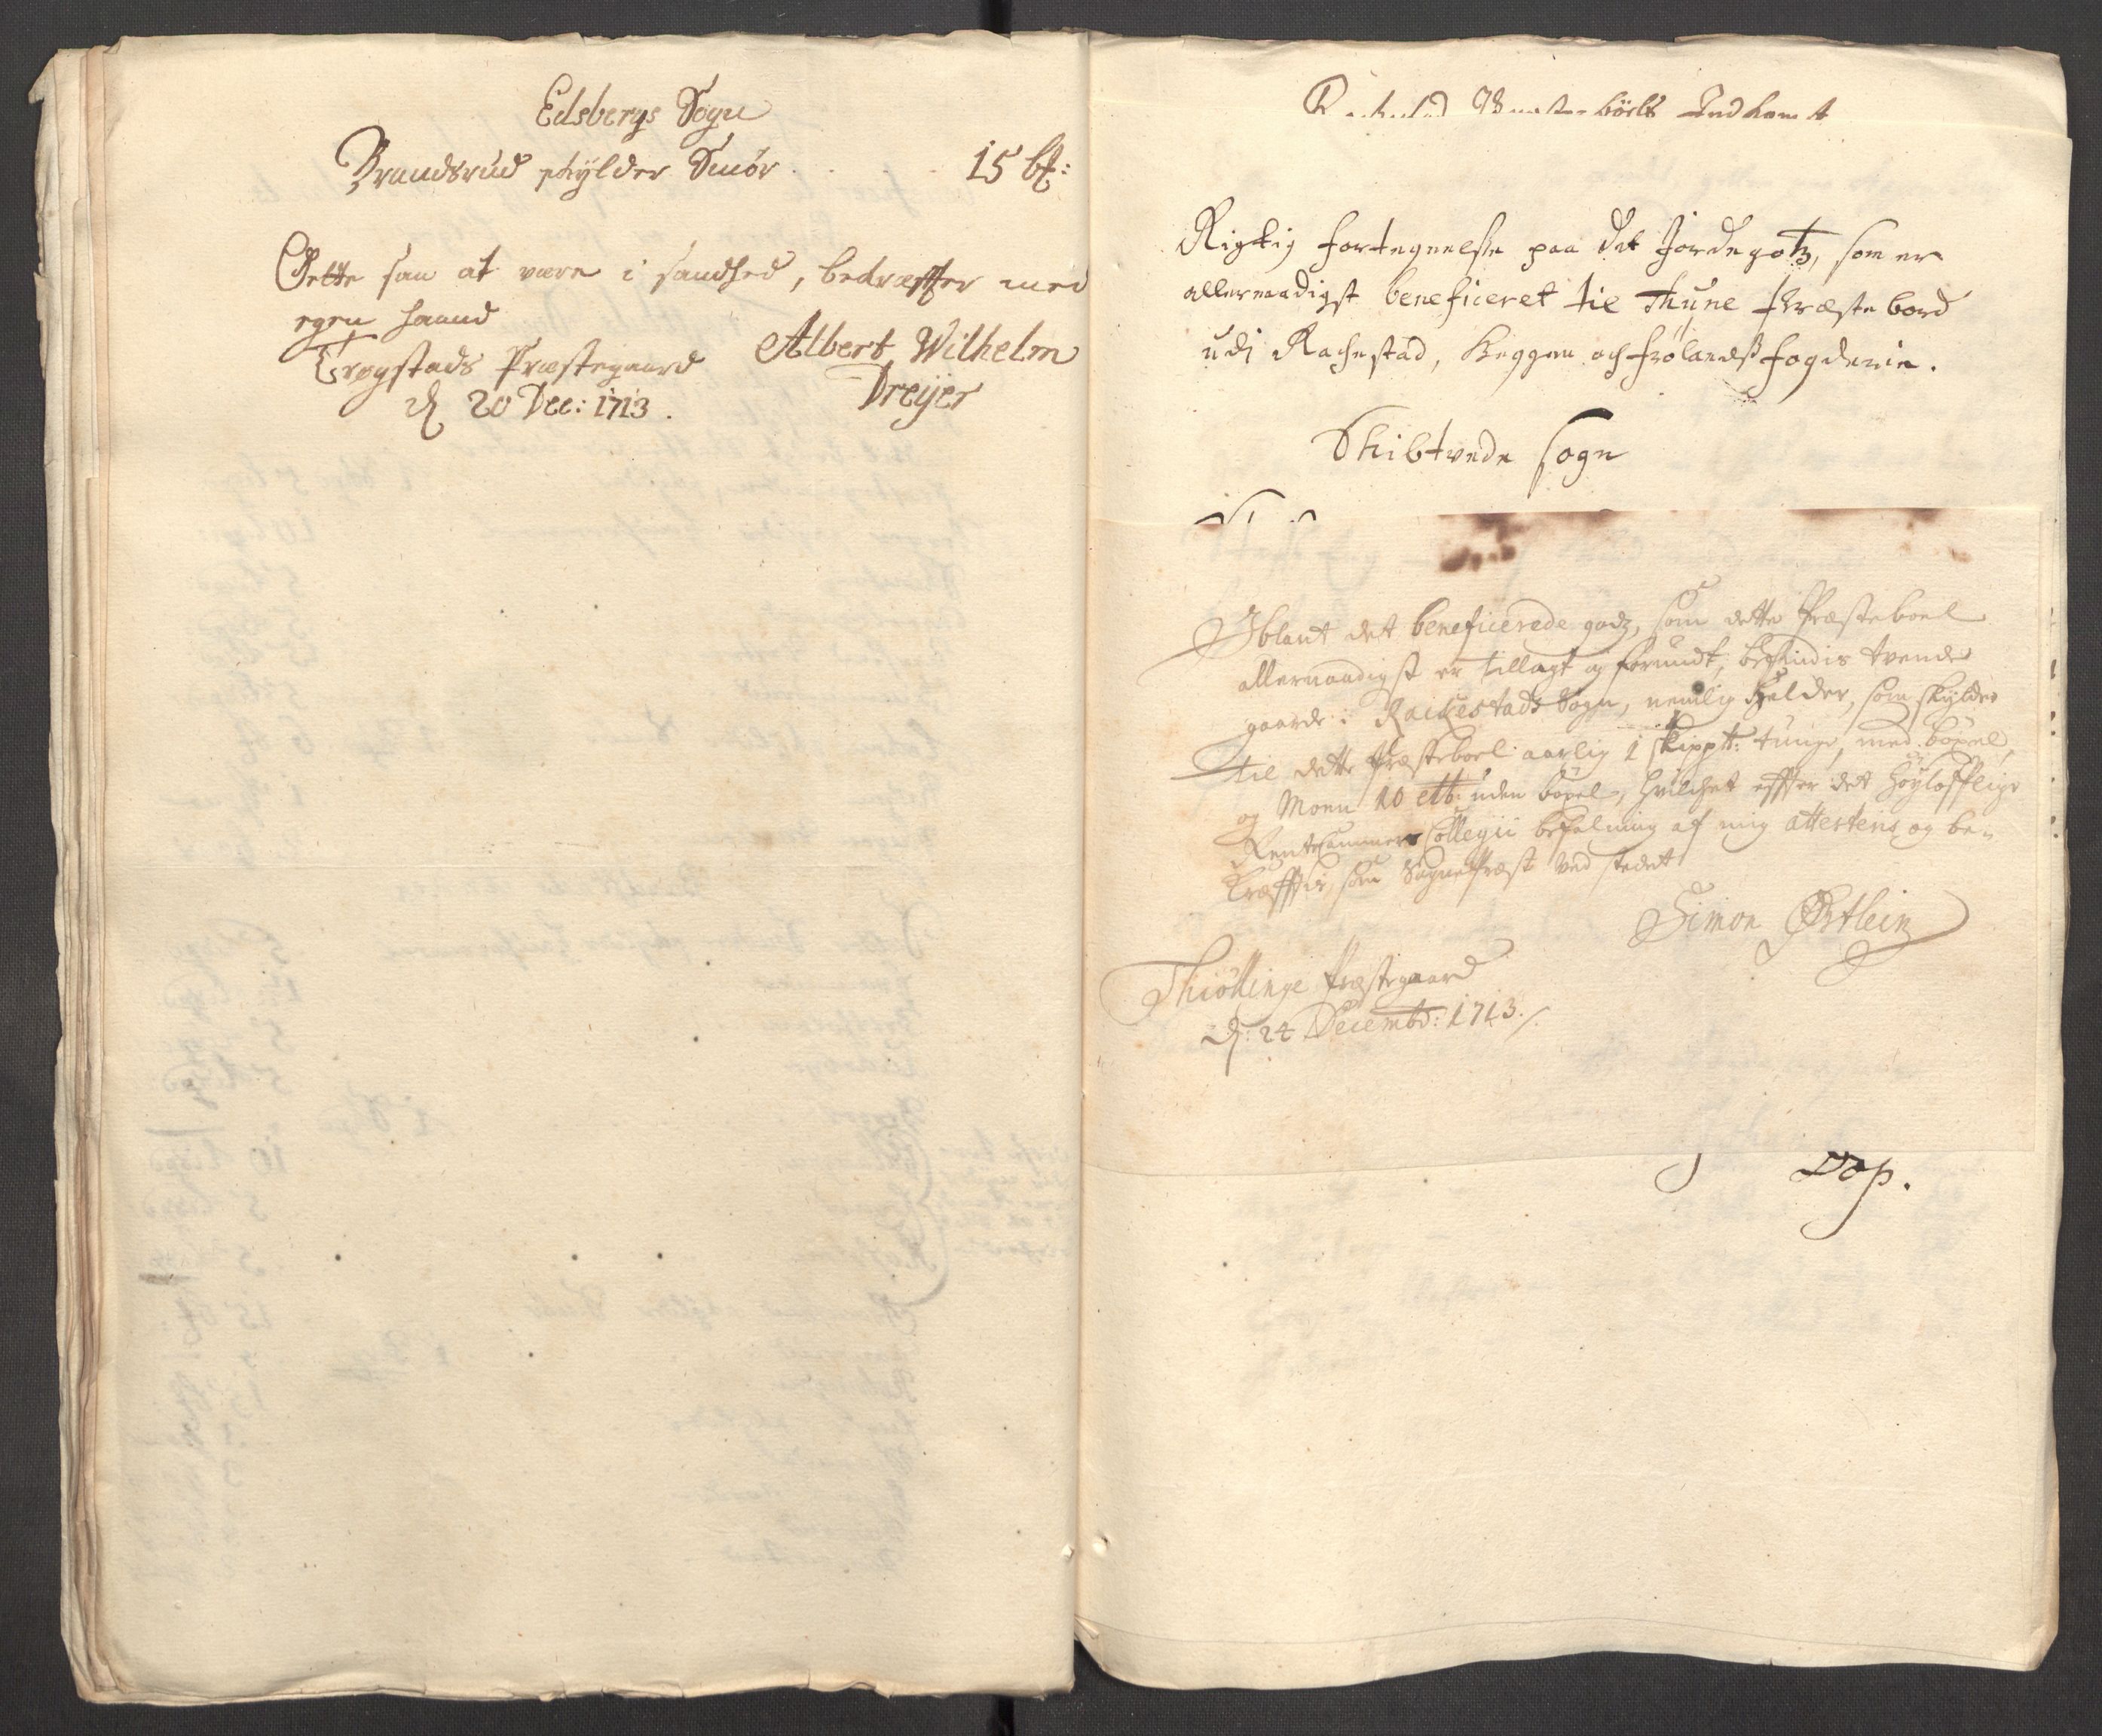 Edsbergs Sogn
Brandsrud skylder Smör 15 bt:
Dette saa at være i sandhed, bekræffter med
egen haand
Trøgstads Præstegaard Albert Wilhelm
d 20 Dec: 1713. Dreÿer
Præstebölts Indkomst
Rigtig fortegnelsse paa det Jordegotz, som er
allernaadigst beneficeret til Thune Præstebord
udj Rachestad, Heggen och Frølandsz fogderie.
Skibtvede Sogn
Iblant det beneficerede godz, som dette Præsteboel
allernaadigst er tillagt og forundt, befindis tvende
gaarde i Rackestads Sogn, nemlig Helder, som skylder
til dette Præsteboel aarlig 1 skippd: tunge, med böxel,
og Moen 10 uden böxel, hvilchet effter det Höyloflige
RenteCammer Collegii befalning af mig attesteris og be-
kræfftis, som Sognepræst ved stedet
Simon Østlein
Thiöllinge Præstegaard
d: 24 Decembr: 1713.
Dop.